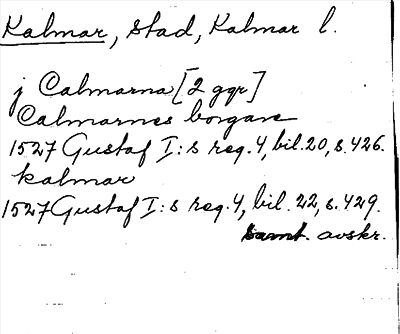 Kalmar, stad, Kalmar l.
j Calmarna [2 ggr]
Calmarnes borgare
1527 Gustaf I:s reg. 4, bil. 20, s. 426.
kalmar
1527 Gustaf I:s reg. 4, bil. 22, s. 429.
samt. avskr.